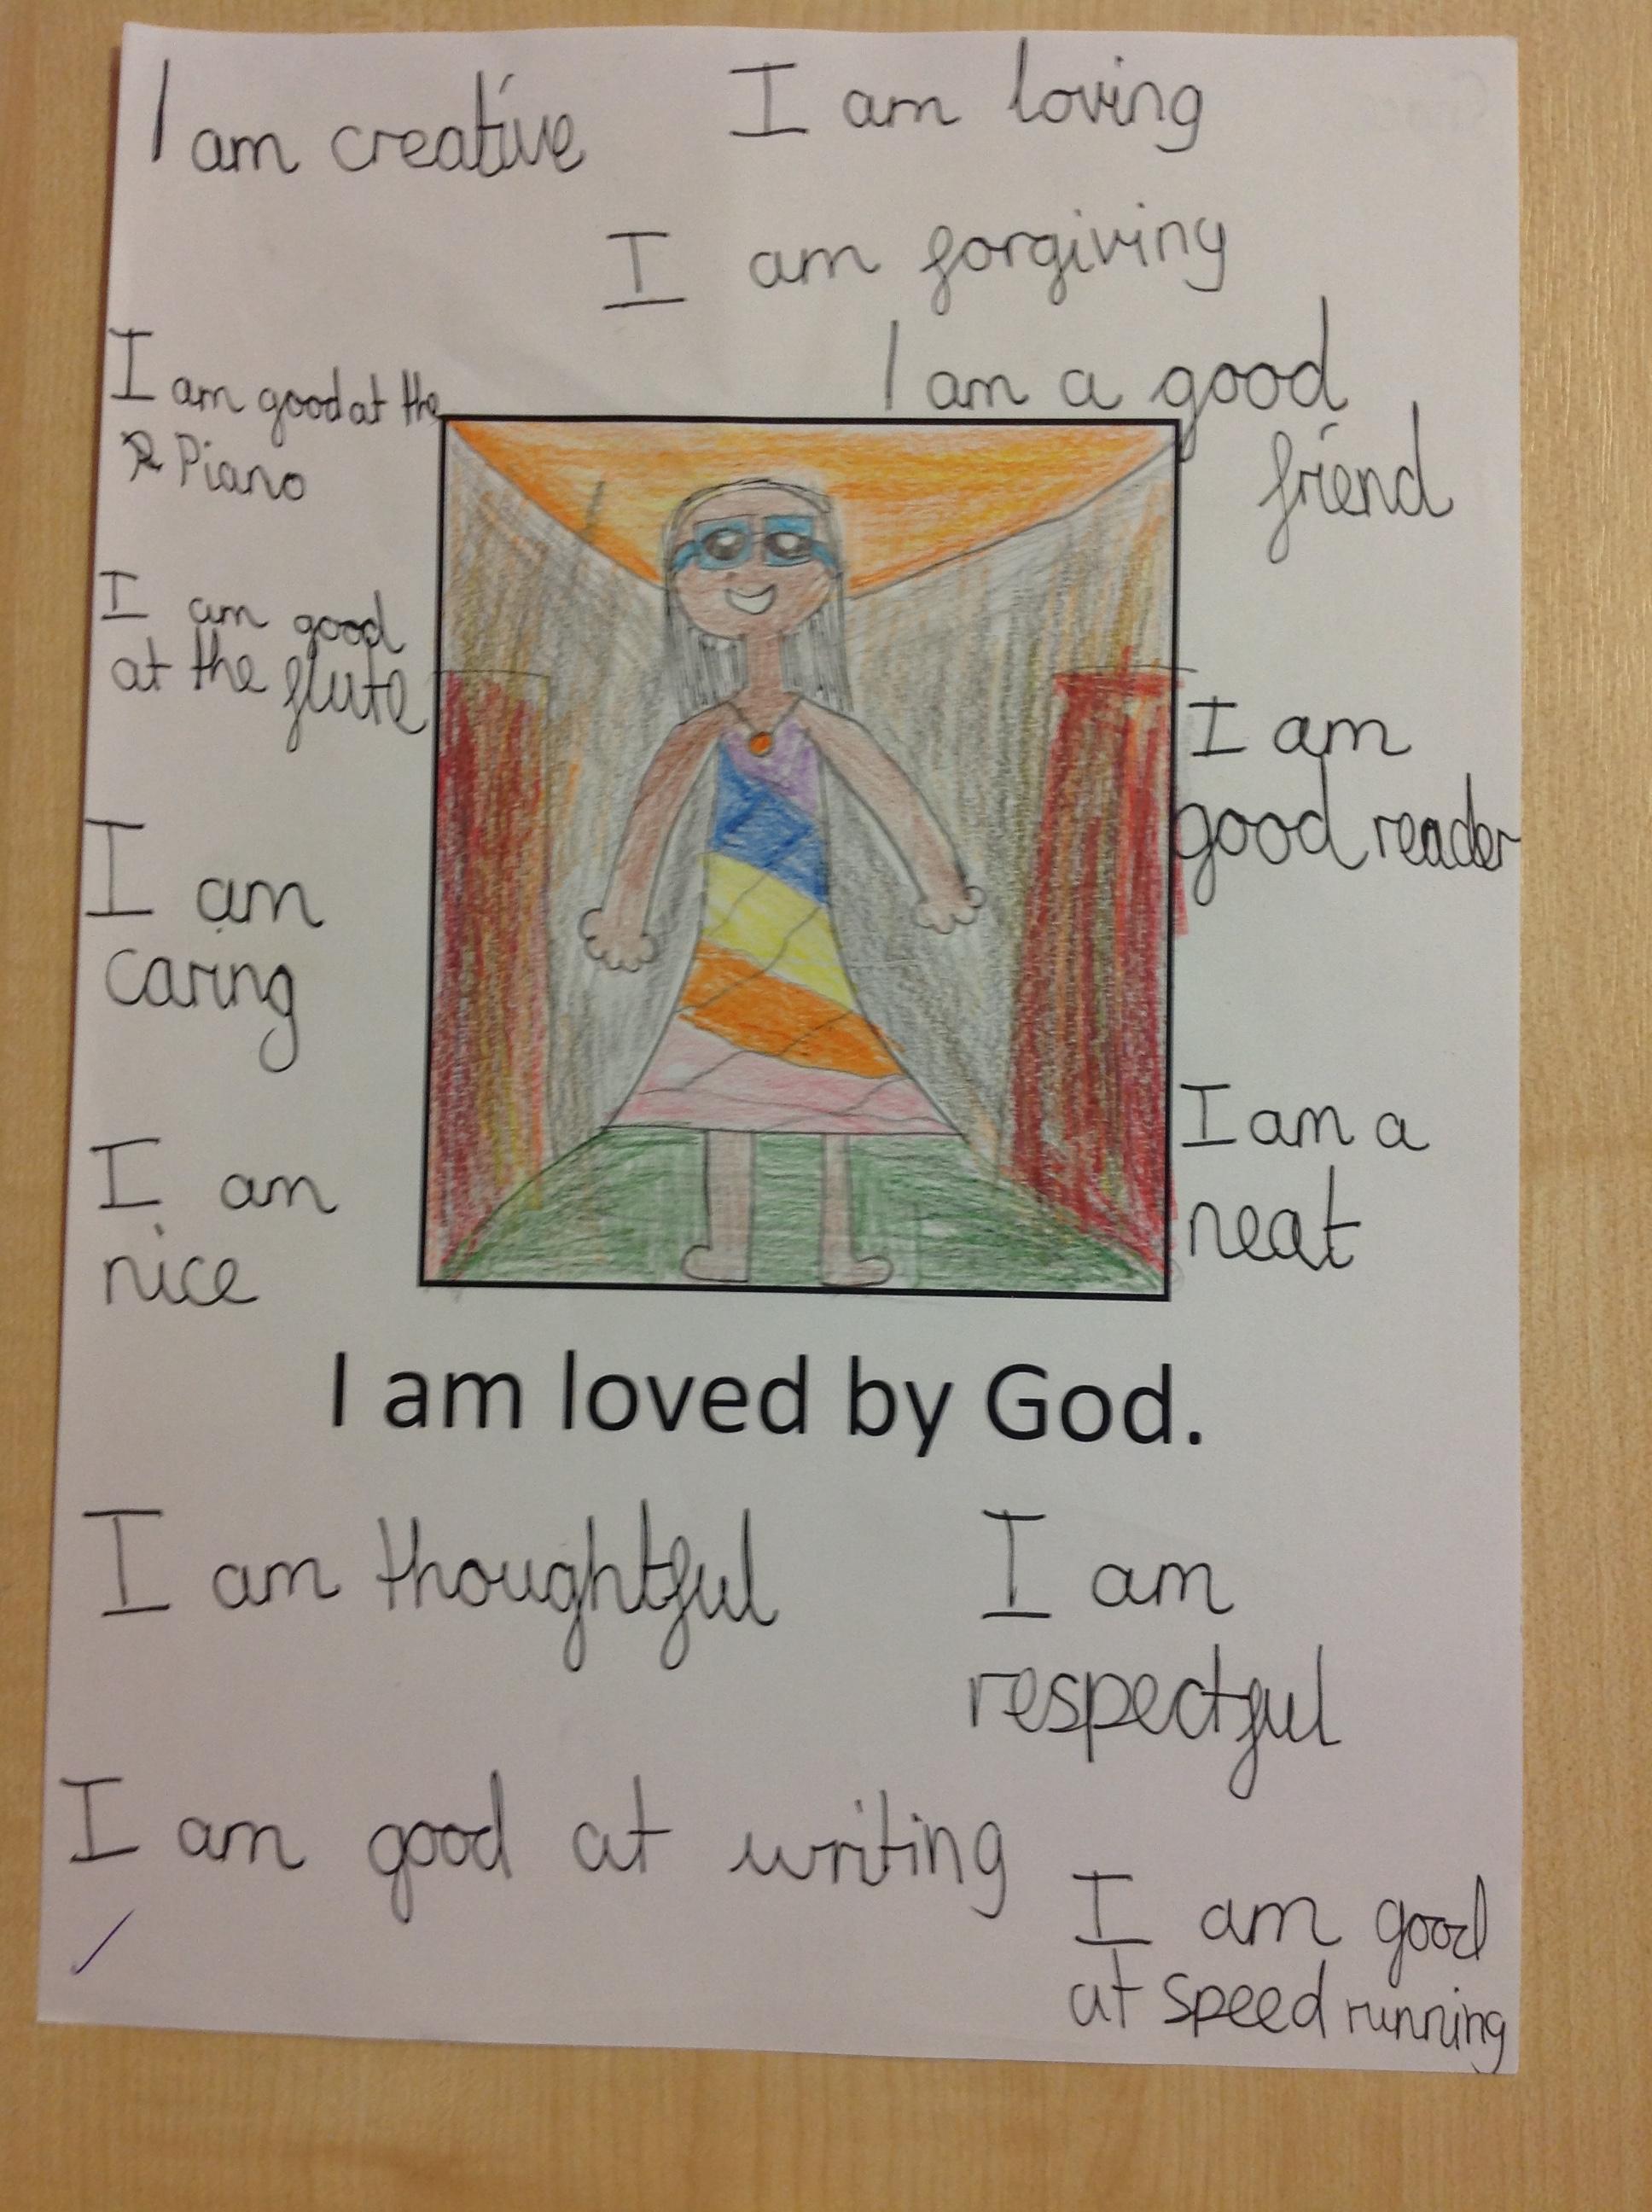 I am creative
I am loving
I am forgiving
I am good at the
Piano
I am a good
friend
I am good
at the flute
I am
good reader
I am
caring
I am a
neat
I am
nice
I am loved by God.
I am thoughtful
I am
respectful
I am good at writing
I am good
at speed running